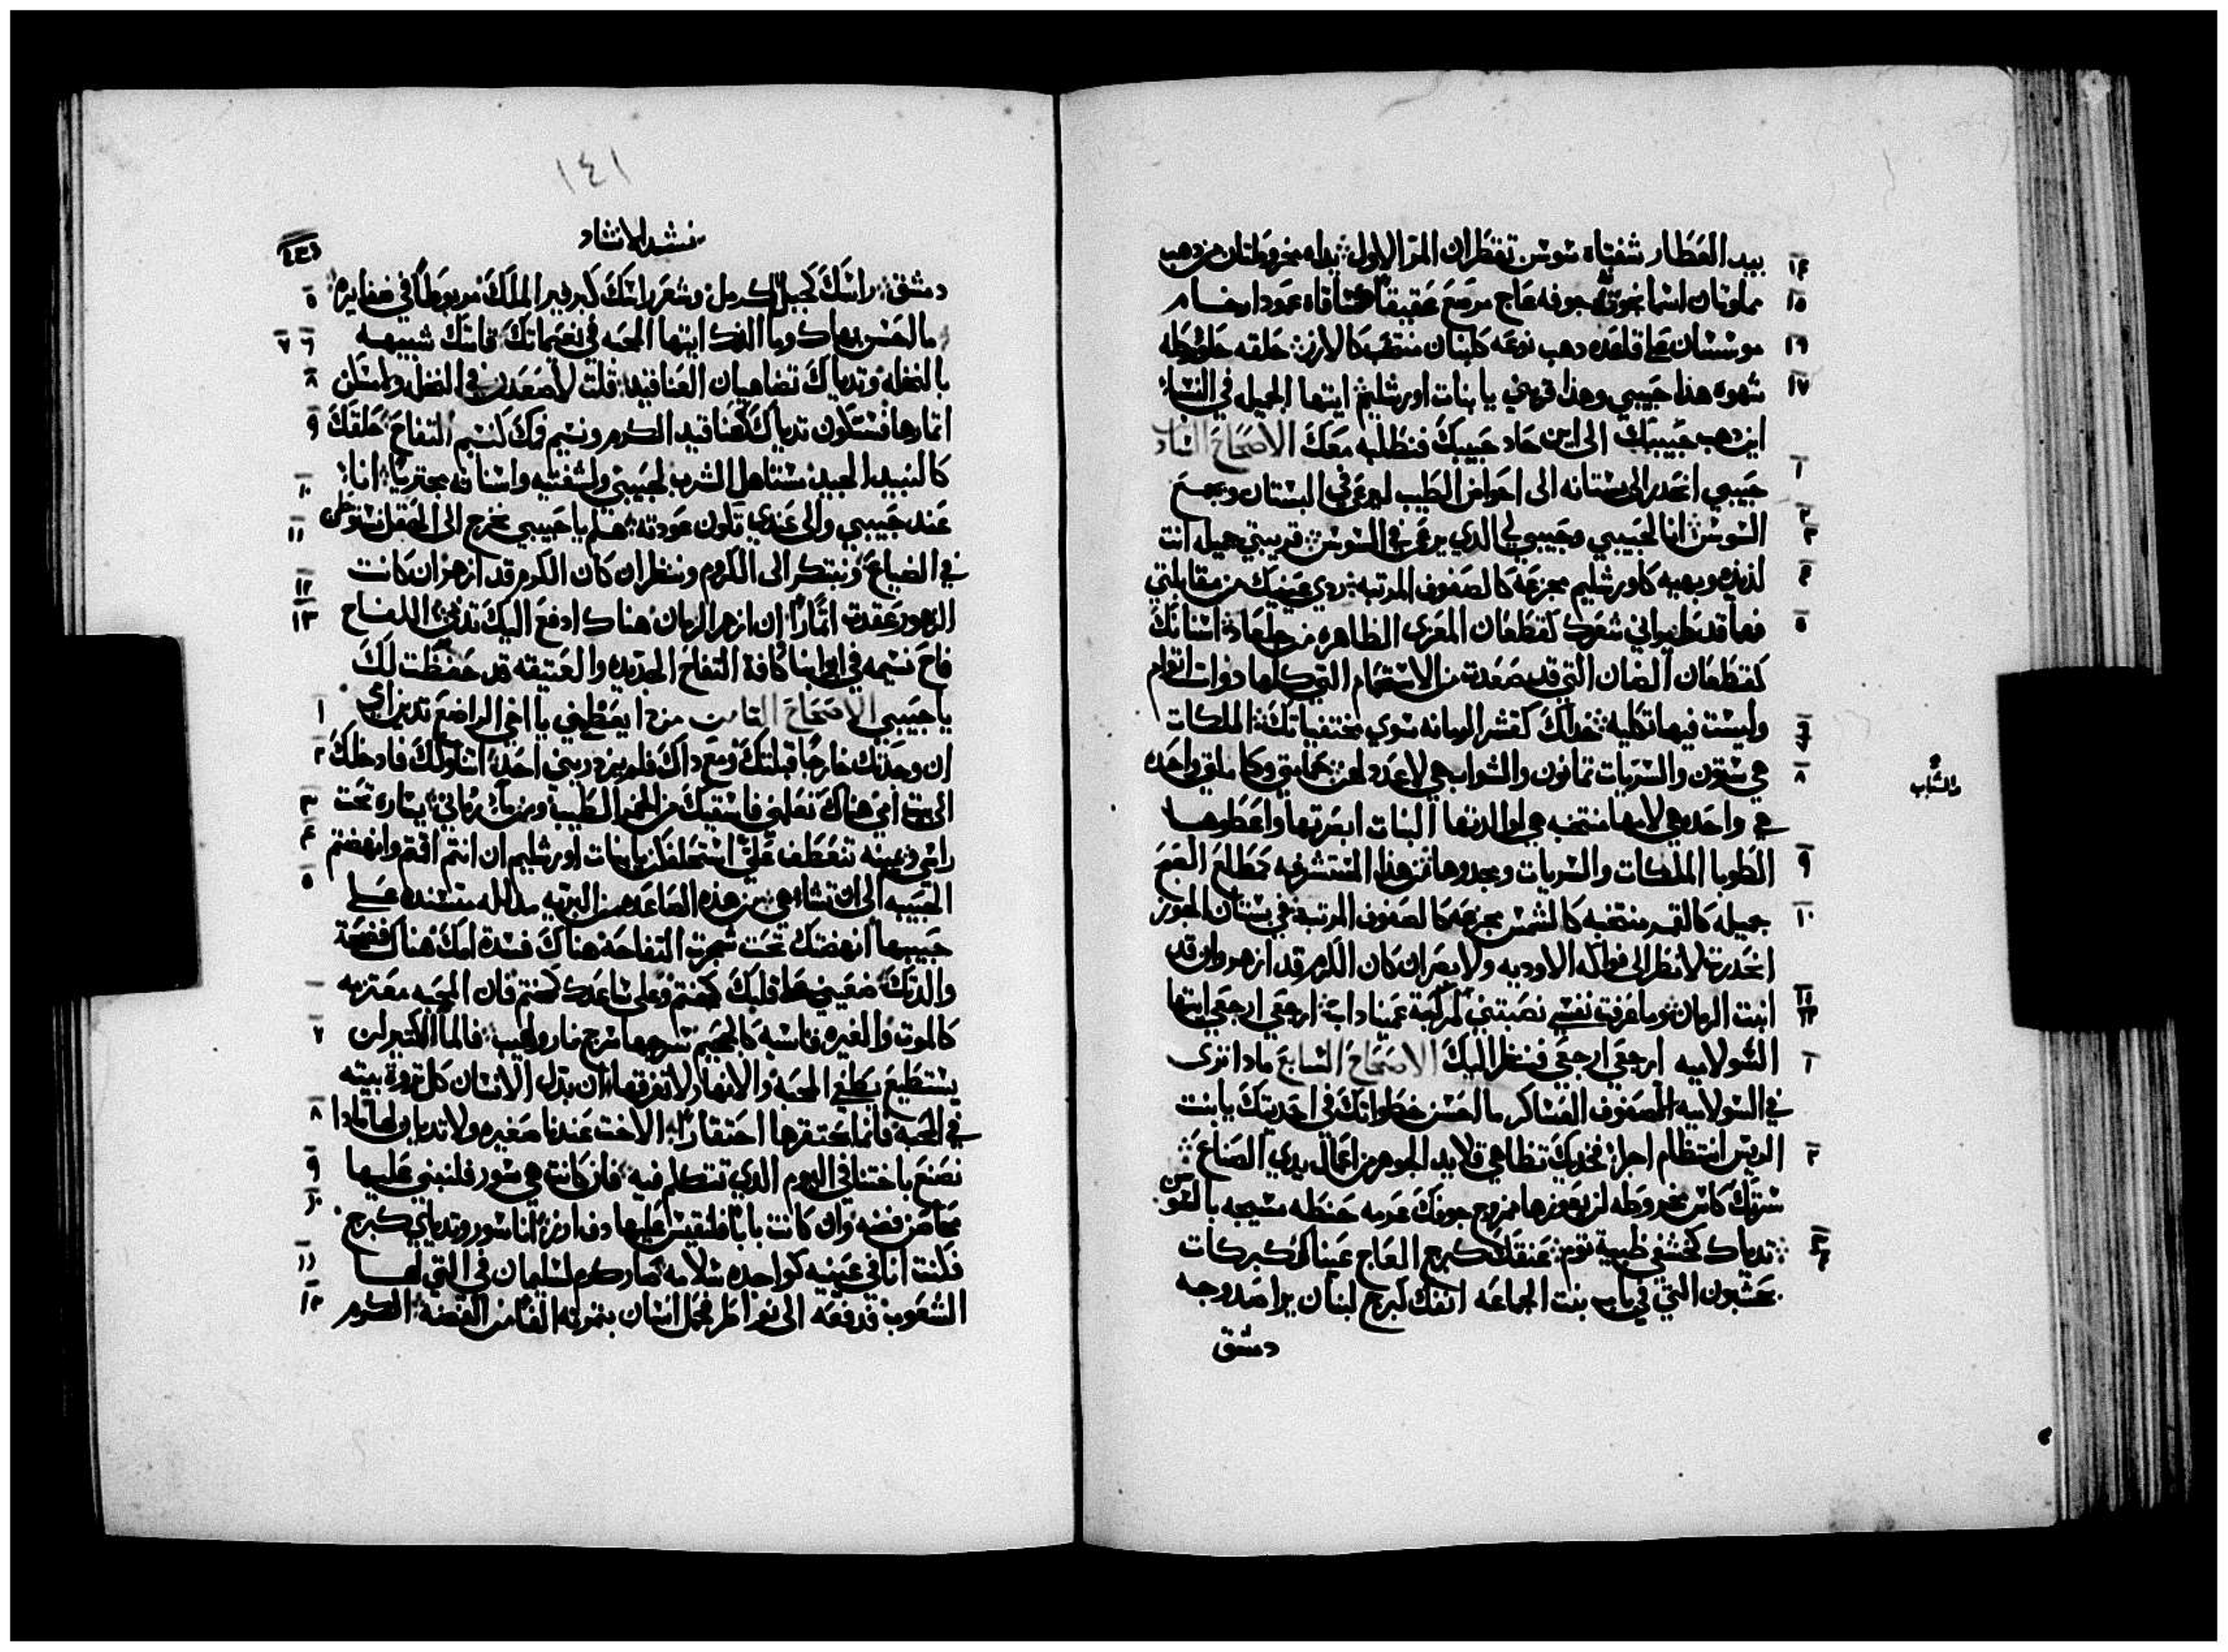 بيد العطار شفتاه سوسن تقطران المر الاول يداه مخروطتان من ذهب
١٤
مملوتان اسمانجوني جوفه عاج مرصع عقيقا ساقاه عمودا رخام
١٥
موسسان على قاعده دهب نوعه كلبنان منتخب كالارز حلقه حلو وكله
١٦
شهوه هذا حبيبي وهذا قريبي يا بنات اورشليم ايتها الجميله في النساء
١٧
اين دهب حبيبك الى اين حاد حبيبك فنطلبه معك الاصحاح السادس
حبيبي انحدر الى بستانه الى احواض الطيب ليرعى في البستان ويجمع
١
السوسن انا لحبيبي وحبيبي لي الدي يرعى في السوسن قريبتي جميله انت
٢
٣
لذيذه وبهيه كاورشليم مجزعه كالصفوف المرتبه ردي عينيك من مقابلتي
٤
فهما قد طيراني شعرك كقطعان المعزى الظاهره من جلعاد اسنانك
٥
كقطعان الضان التي قد صعدت من الاستحمام التي كلها دوات اتوام
وليست فيها تكليه خداك كقشر الرمانه سوى مختفياتك الملكات
٦
٧
هي ستون والسريات تمانون والشواب هي لا عدد لهن حمامتي وكاملتي واحده
٨
والشباب
هي واحده هي لامها منتخبه هي لوالدتها البنات ابصرتها واعطوها
الطوبا الملكات والسريات ومجدوها من هذه المستشرفه كمطلع الصبح
٩
جميله كالقمر منتخبه كالشمس مجزعه كالصفوف المرتبه في بستان الجوز
١٠
انحدرت لانظر الى فواكه الاوديه ولابصر ان كان الكرم قد ازهر وان قد
انبت الرمان وما عرفت نفسي نصبتني لمركبة عميناداب ارجعي ارجعي ايتها
١١
١٢
الشولاميه ارجعي ارجعي فننظر اليك الاصحاح السابع مادا نرى
١
في السولاميه الصفوف العساكر ما احسن خطواتك في احديتك يا بنت
الريس انتظام احرام فخديك تظاهي قلايد الجوهر من اعمال يدي الصناع
٢
سرتك كاس مخروطه لن يعوزها ممزوج جوفك عرمه حنطه مسيجه بالسوسن
ثدياك كخشفي ظبية توم عنقك كبرج العاج عيناك كبركات
٣
٤
حشبون التي في باب بنت الجماعه انفك كبرج لبنان يراصد وجه
دمشق
١٤١
نشيد الانشاد
دمشق راسك كجبل الكرمل وشعر راسك كبرفير الملك مربوطا في ضفايره
٥
ما احسن بهاك وما الدك ايتها المحبه في نعيماتك قامتك شبيهه
٦ ٧
بالنخله وتدياك تضاهيان العناقيد قلت لاصعدن في النخله وامسكن
٨
اتمارها فستكون تدياك كعناقيد الكرم ونسيم فمك كنسيم التفاح حلقك
٩
كالنبيد الجيد مستاهل الشرب لحبيبي ولشفتيه واسنانه مجتريا انا
١٠
عند حبيبي والى عندي تكون عودته هلم يا حبيبي نخرج الى الحقل نستوطن
١١
في الضياع ونبتكر الى الكروم وننظر ان كان الكرم قد ازهر ان كانت
١٢
الزهور عقدت اتمارا ان ازهر الرمان هناك ادفع اليك تديي اللفاح
١٣
فاح نسيمه في ابوابنا كافة التفاح الجديده والعتيقه قد حفظت لك
يا حبيبي الاصحاح التامن من دا يعطيني يا اخي الراضع تديين امي
١
ان وجدتك خارجا قبلتك ومع داك فلم يزدريني احد اتناولك فادخلك
٢
الى بيت امي هناك تعلمني فاسقيك من الخمر الطيب ومن ماء رماني يساره تحت
٣
راسي ويمينه تنعطف علي استحلفكن يا بنات اورشليم ان انتم اقمتم وانهضتم
٤
الحبيبه الى ان تشاء هي من هذه الصاعده من البريه مدلله مستنده على
٥
حبيبها انهضتك تحت شجرت التفاحه هناك فسدة امك هناك فضحة
والدتك ضعيني على قلبك كختم وعلى ساعدك كختم فان المحبه معتزيه
كالموت والغيره قاسيه كالجحيم سرجها سرج نار ولهيب فالماء الكتير لن
٧
يستطيع يطفي المحبه والانهار لا تغرقها ان بدل الانسان كل تروة بيته
في المحبه فانما يحتقرها احتقارا الاخت عندنا صغيره ولا تديان لها مادا
٨
نصنع باختنا في اليوم الدي تتكلم فيه فان كانت هي سور فلنبني عليها
٩
محاصن فضه وان كانت بابا فلنقيس عليها دف ارز انا سور وتدياي كبرج
١٠
فكنت انا في عينيه كواجده سلامه صار كرم لسليمان في التي لها
١١
الشعوب قد دفعه الى نواطر فجل انسان بتمرته الفا من الفضه الكرم
١٢